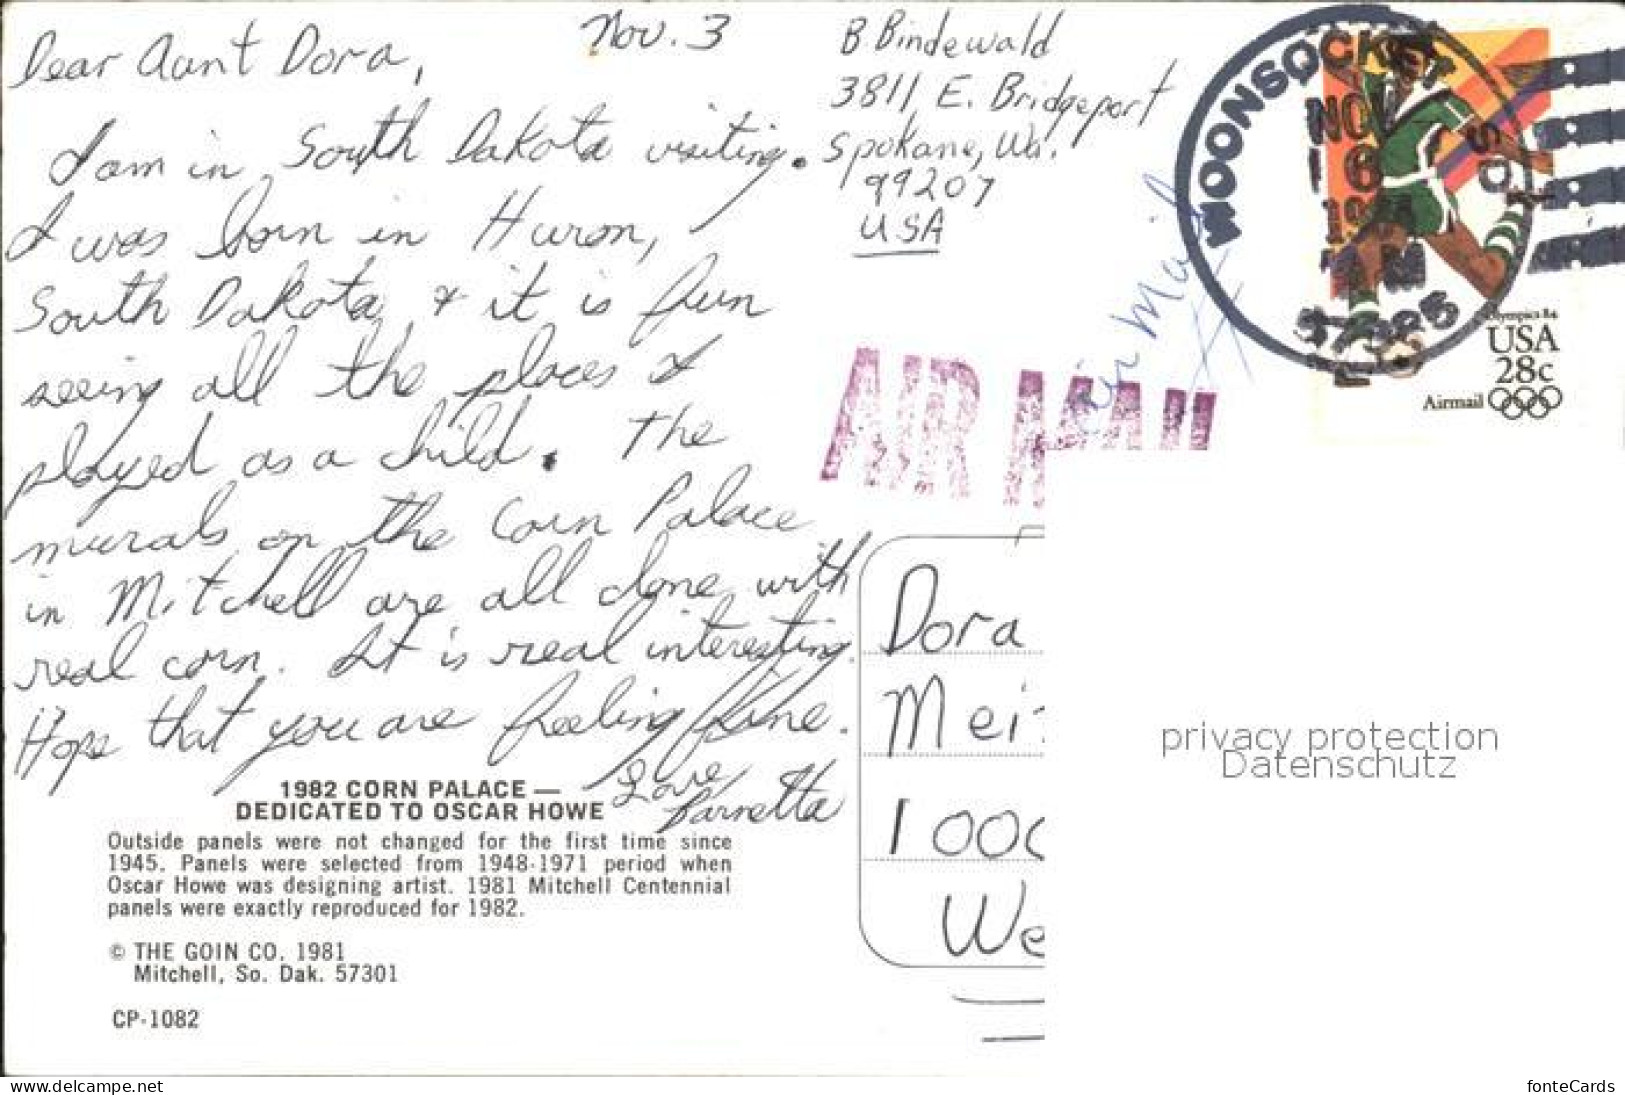 Nov. 3
Dear Aunt Dora,
I am in South Dakota visiting.
I was born in Huron,
South Dakota & it is fun
seeing all the places I
played as a child. The
murals on the Corn Palace
in Mitchell are all done with
real corn. It is real interesting.
Hope that you are feeling fine.
Love
B Bindewald
3811 E. Bridgeport
Spokane, Wa.
99207
USA
Air Mail
AIR MAIL
WOONSOCKET
NOV
6
AM
57385
Olympics 84
USA
28c
Airmail
Dora
Mei
1000
We
1982 CORN PALACE —
DEDICATED TO OSCAR HOWE
Outside panels were not changed for the first time since
1945. Panels were selected from 1948-1971 period when
Oscar Howe was designing artist. 1981 Mitchell Centennial
panels were exactly reproduced for 1982.
© THE GOIN CO. 1981
Mitchell, So. Dak. 57301
CP-1082
privacy protection
Datenschutz
www.delcampe.net
fonteCards